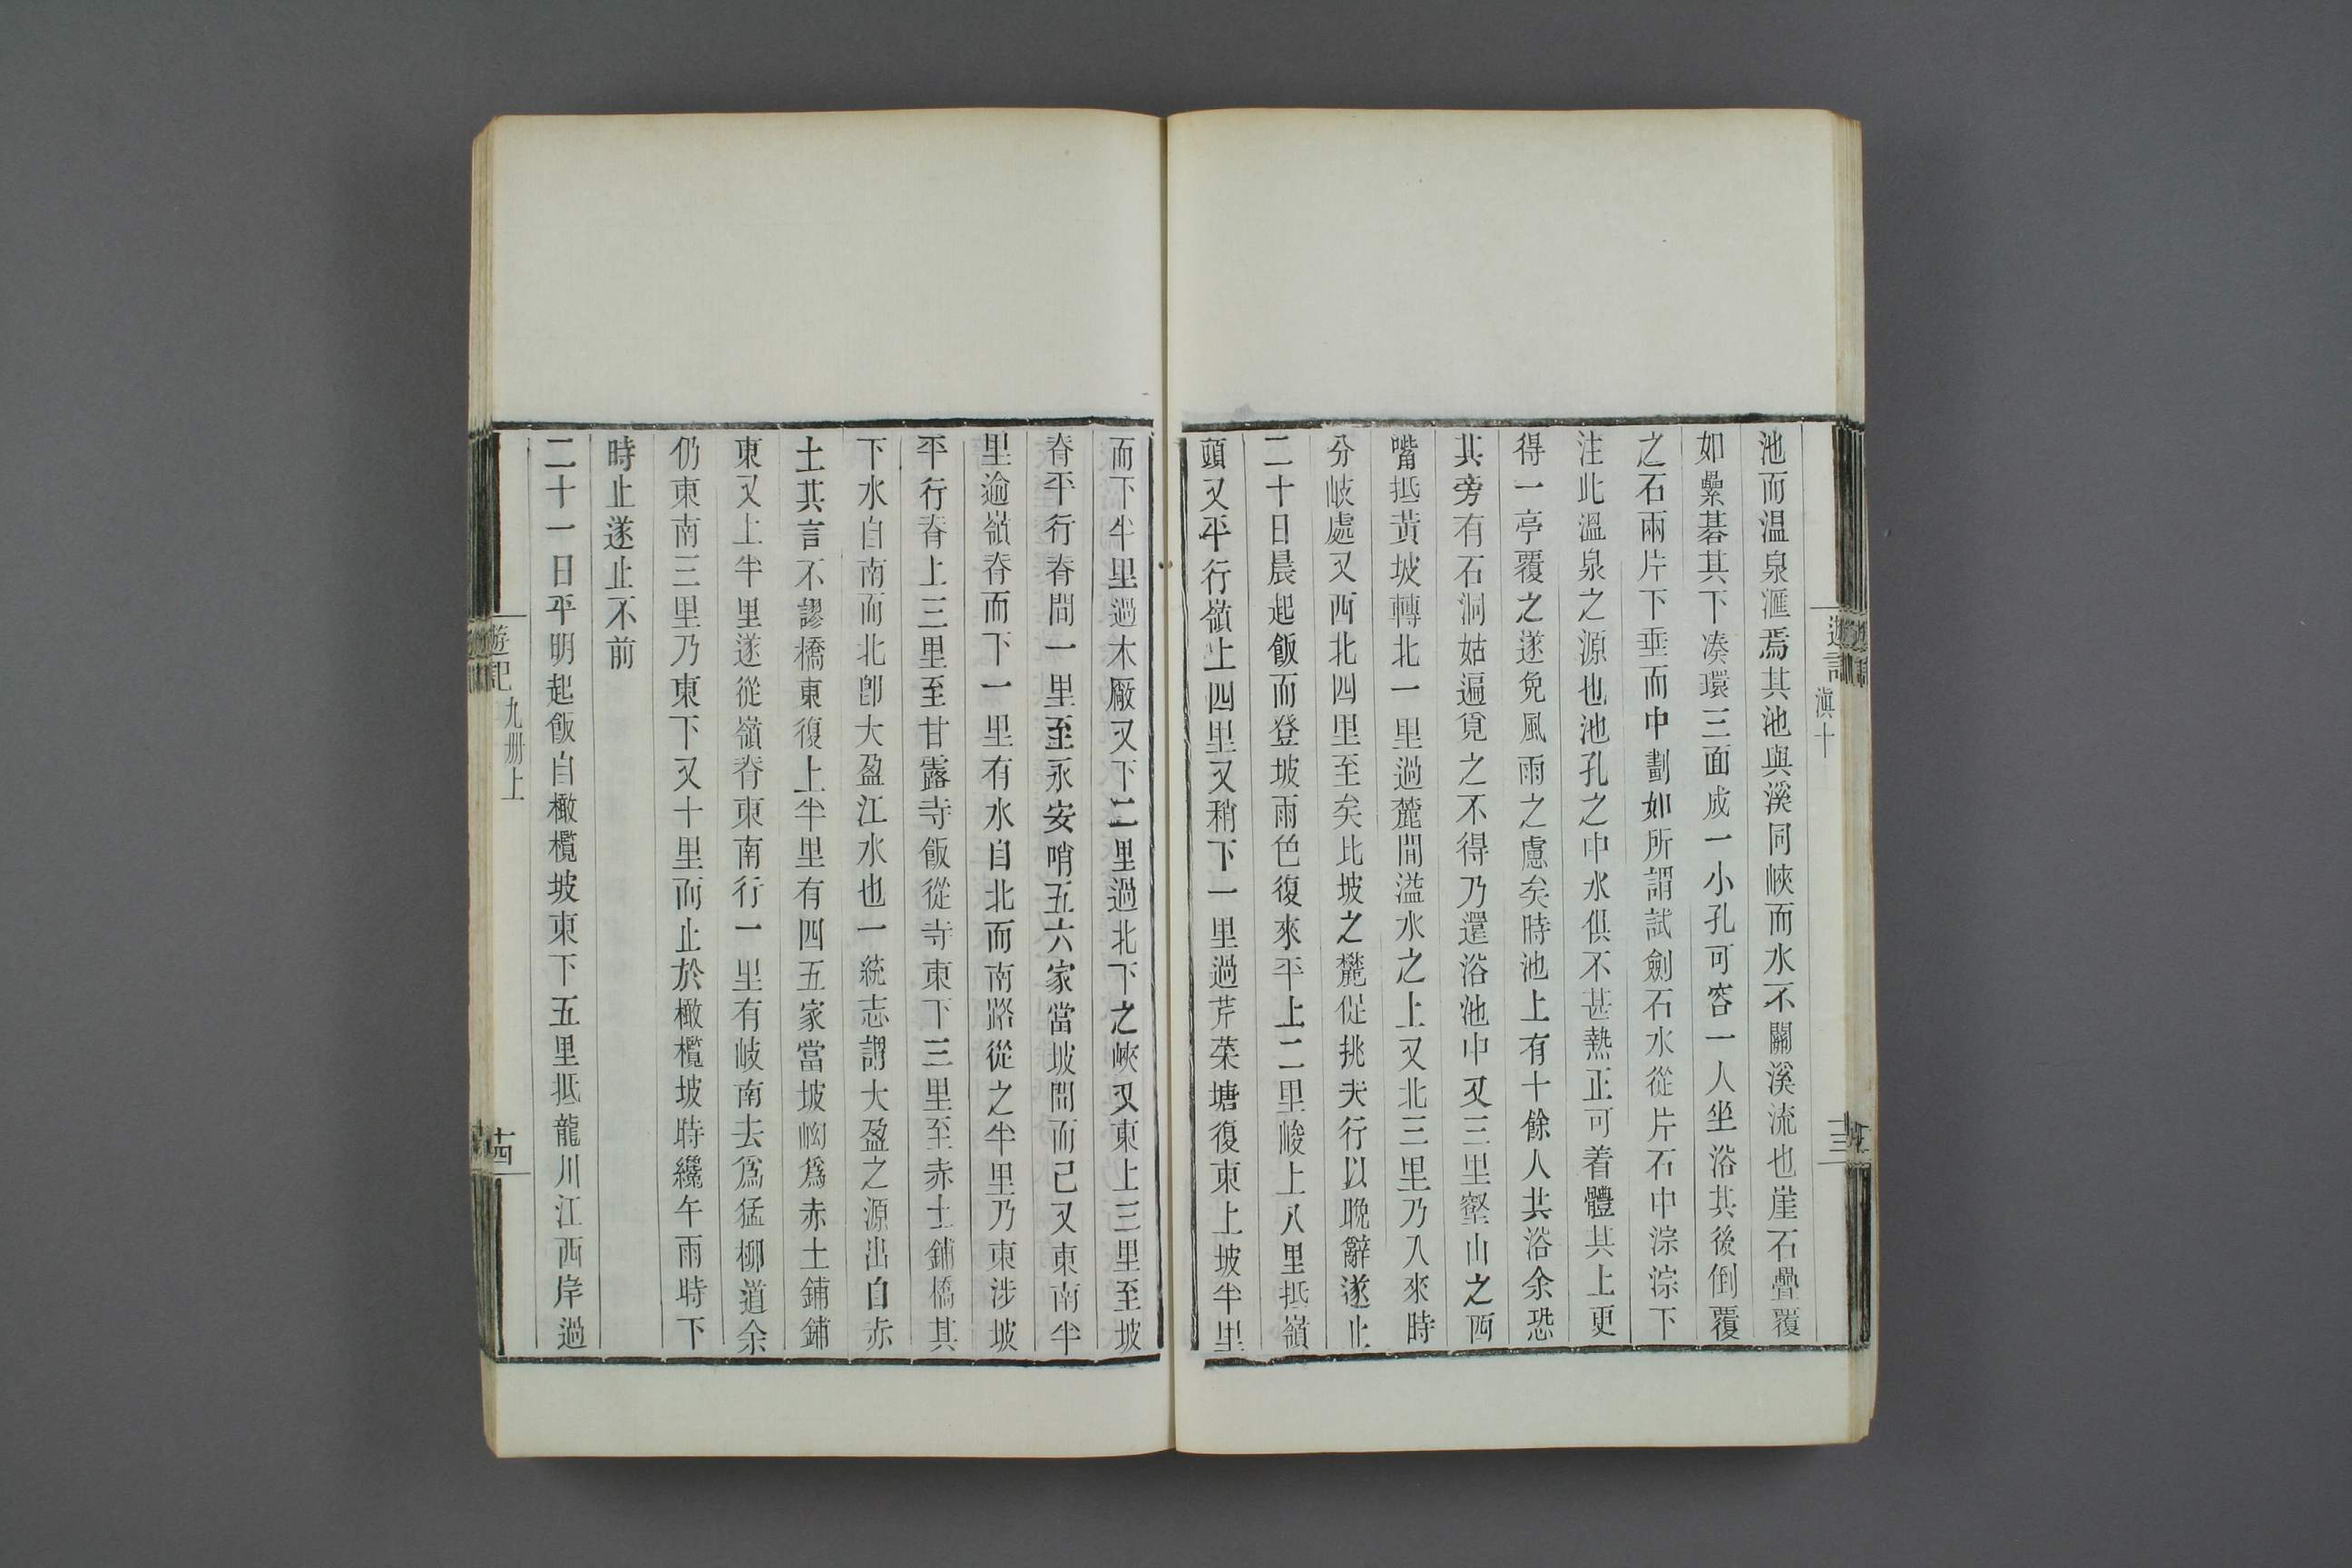 遊記
滇十
池而温泉滙焉其池與溪同峽而水不關溪流也崖石疊覆
如纍碁其下湊環三面成一小孔可容一人坐浴其後倒覆
之石兩片下垂而中劃如所謂試劍石水從片石中淙淙下
注此溫泉之源也池孔之中水俱不甚熱正可着體其上更
得一亭覆之遂免風雨之慮矣時池上有十餘人共浴余恐
其旁有石洞姑遍覓之不得乃還浴池中又三里壑山之西
嘴抵黃坡轉北一里過麓間溢水之上又北三里乃入來時
分岐處又西北四里至矣比坡之麓促挑夫行以晚辭遂止
二十日晨起飯而登坡雨色復來平上二里峻上八里抵嶺
頭又平行嶺上四里又稍下一里過芹菜塘復東上坡半里
而下半里過木廠又下二里過北下之峽又東上三里至坡
脊平行脊間一里至永安哨五六家當坡間而已又東南半
里逾嶺脊而下一里有水自北而南路從之半里乃東涉坡
平行脊上三里至甘露寺飯從寺東下三里至赤土鋪橋其
下水自南而北卽大盈江水也一統志謂大盈之源出自赤
土其言不謬橋東復上半里有四五家當坡㘭爲赤土鋪鋪
東又上半里遂從嶺脊東南行一里有岐南去爲猛柳道余
仍東南三里乃東下又十里而止於橄欖坡時纔午雨時下
時止遂止不前
二十一日平明起飯自橄欖坡東下五里抵龍川江西岸過
遊記
九册上
十四